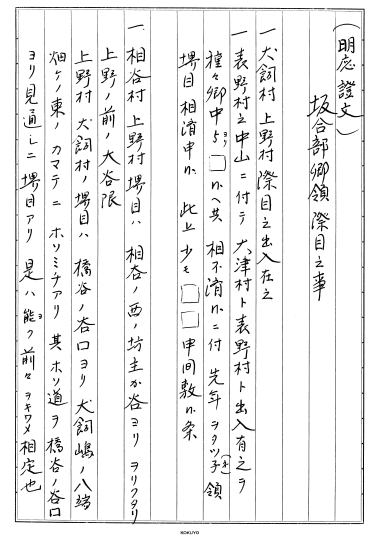 (明応證文)
坂合部郷領際目之事
一 犬飼村上野村際目之出入在之
一 表野村之中山ニ付テ大津村ト表野村ト出入有之ヲ
種々郷中ゟ□ヘ共 相不濟ニ付 先年ヲタツ子[本]領
堺目相濟申 此上少モ□□申間敷条
一 相谷村上野村堺目ハ 相谷ノ西ノ坊主か谷ヨリ ヲリクタリ
上野ノ前ノ大谷限
上野村犬飼村ノ堺目ハ 橋谷ノ谷口ヨリ犬飼嶋ノ八端
畑ケノ東ノカマテニ ホソミチアリ 其ホソ道ヲ橋谷ノ谷口
ヨリ見通シニ堺目アリ 是ハ能ヨク前々ヲキワメ相定也
KOKUYO